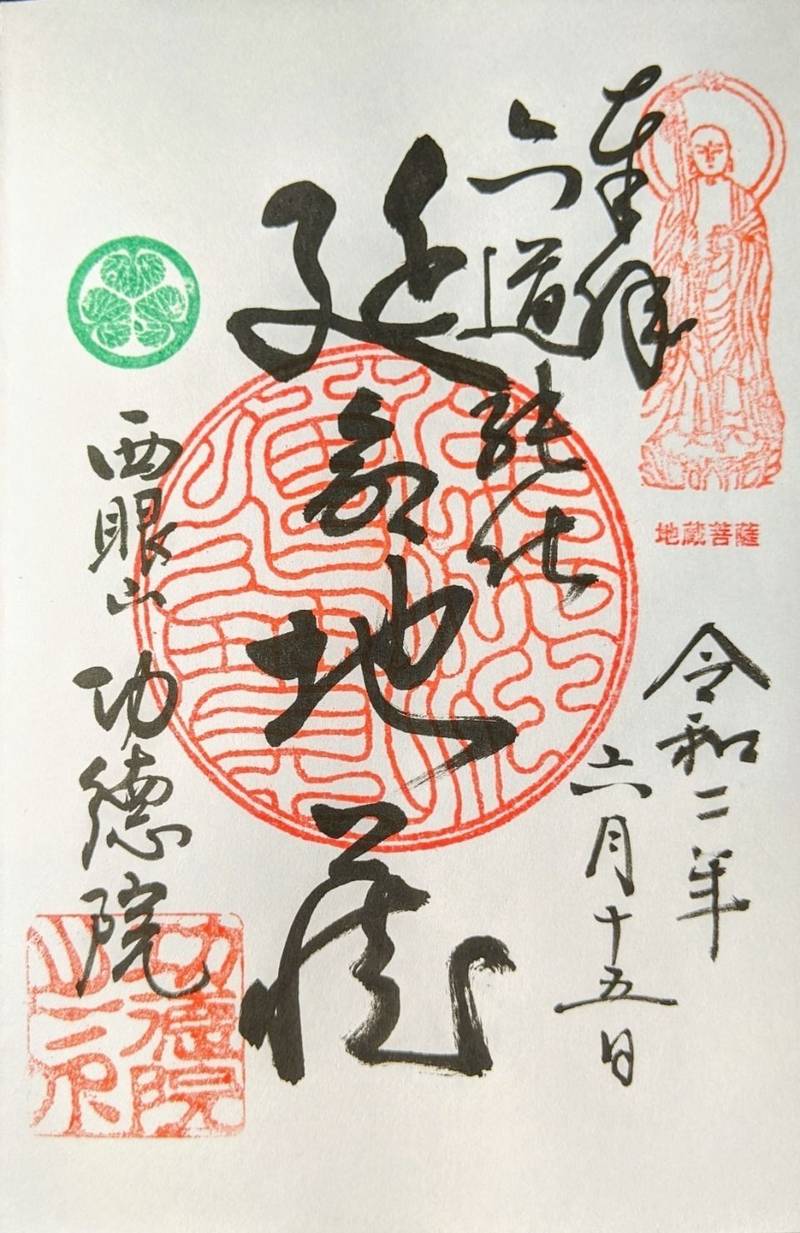 奉拝
地蔵菩薩
令和二年
六月十五日
六道能化
延命地蔵
西眼山 功徳院
功徳院